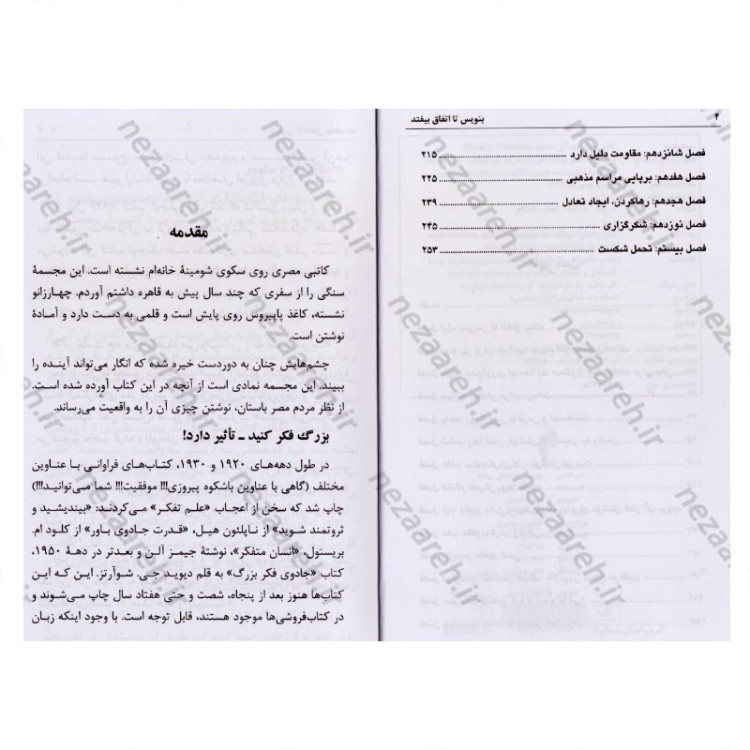 ۴ بنویس تا اتفاق بیفتد
فصل شانزدهم: مقاومت دلیل دارد ........ ۲۱۵
فصل هفدهم: برپایی مراسم مذهبی ........ ۲۲۵
فصل هجدهم: رهاکردن، ایجاد تعادل ........ ۲۳۹
فصل نوزدهم: شکرگزاری ........ ۲۴۵
فصل بیستم: تحمل شکست ........ ۲۵۳
مقدمه
کاتبی مصری روی سکوی شومینهٔ خانه‌ام نشسته است. این مجسمهٔ
سنگی را از سفری که چند سال پیش به قاهره داشتم آوردم. چهارزانو
نشسته، کاغذ پاپیروس روی پایش است و قلمی به دست دارد و آمادهٔ
نوشتن است.
چشم‌هایش چنان به دوردست خیره شده که انگار می‌تواند آینده را
ببیند. این مجسمه نمادی است از آنچه در این کتاب آورده شده است.
از نظر مردم مصر باستان، نوشتن چیزی آن را به واقعیت می‌رساند.
بزرگ فکر کنید ـ تأثیر دارد!
در طول دهه‌های ۱۹۲۰ و ۱۹۳۰، کتاب‌های فراوانی با عناوین
مختلف (گاهی با عناوین باشکوه پیروزی!!! موفقیت!!! شما می‌توانید!!!)
چاپ شد که سخن از اعجاب «علم تفکر» می‌کردند: «بیندیشید و
ثروتمند شوید» از ناپلئون هیل، «قدرت جادوی باور» از کلود ام.
بریستول، «انسان متفکر»، نوشتهٔ جیمز آلن و بعدتر در دههٔ ۱۹۵۰،
کتاب «جادوی فکر بزرگ» به قلم دیوید جی. شوآرتز. این که این
کتاب‌ها هنوز بعد از پنجاه، شصت و حتی هفتاد سال چاپ می‌شوند و
در کتاب‌فروشی‌ها موجود هستند، قابل توجه است. با وجود اینکه زبان
nezaareh.ir
nezaareh.ir
nezaareh.ir
nezaareh.ir
nezaareh.ir
nezaareh.ir
nezaareh.ir
nezaareh.ir